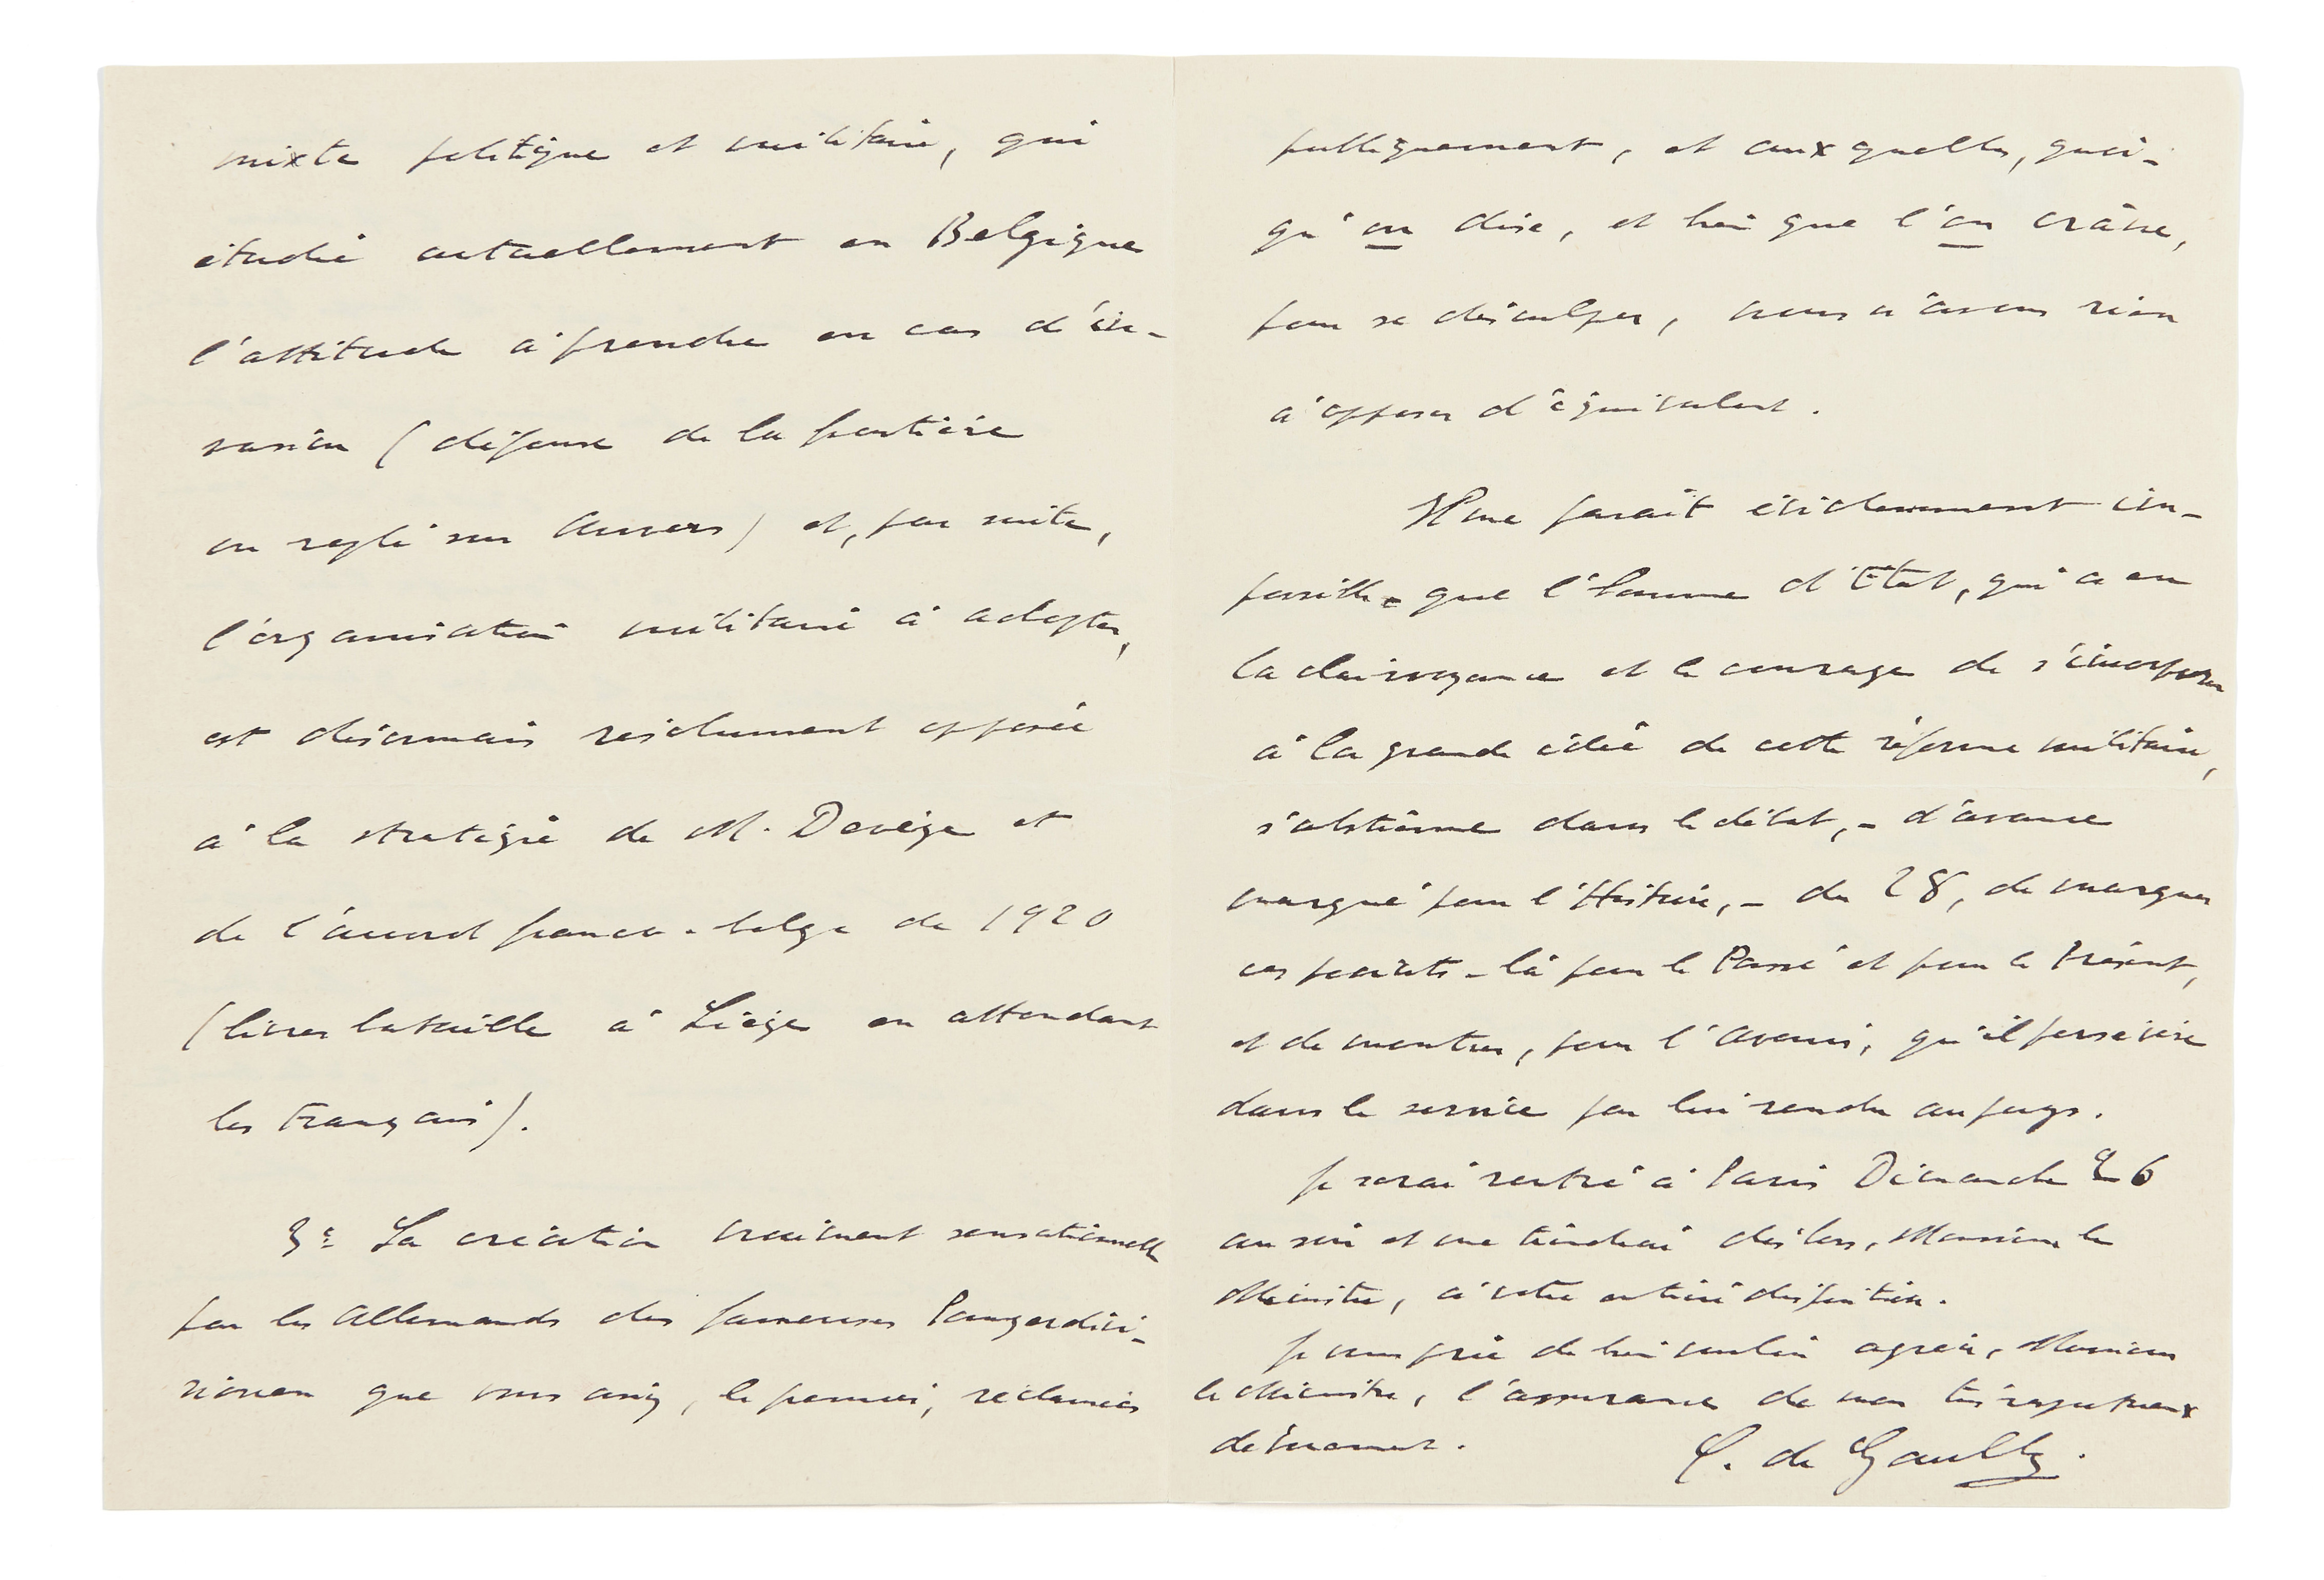 mixte politique et militaire, qui
étudie actuellement en Belgique
l'attitude à prendre en cas d'in-
vasion (défense de la frontière
ou repli sur Anvers) et, par suite,
l'organisation militaire à adopter,
est désormais résolument opposée
à la stratégie de M. Devèze et
de l'accord franco-belge de 1920
(livrer bataille à Liège en attendant
les Français).
3° La création vraiment sensationnelle
par les Allemands des fameuses Panzerdivi-
sionen que vous aviez, le premier, réclamées
publiquement, et auxquelles, quoi-
qu'on dise, et bien que l'on crâne,
pour se disculper, nous n'avons rien
à opposer d'équivalent.
Il me paraît évidemment im-
possible que l'homme d'Etat, qui a eu
la clairvoyance et le courage de s'incorporer
à la grande idée de cette réforme militaire,
s'abstienne dans le débat, - d'avance
marqué pour l'Histoire, - du 28, de marquer
ces points-là pour le Passé et pour le Présent,
et de montrer, pour l'Avenir, qu'il persévère
dans le service par lui rendu au pays.
Je serai rentré à Paris Dimanche 26
au soir et me tiendrai dès lors, Monsieur le
Ministre, à votre entière disposition.
Je vous prie de bien vouloir agréer, Monsieur
le Ministre, l'assurance de mon très respectueux
dévouement.
C. de Gaulle.